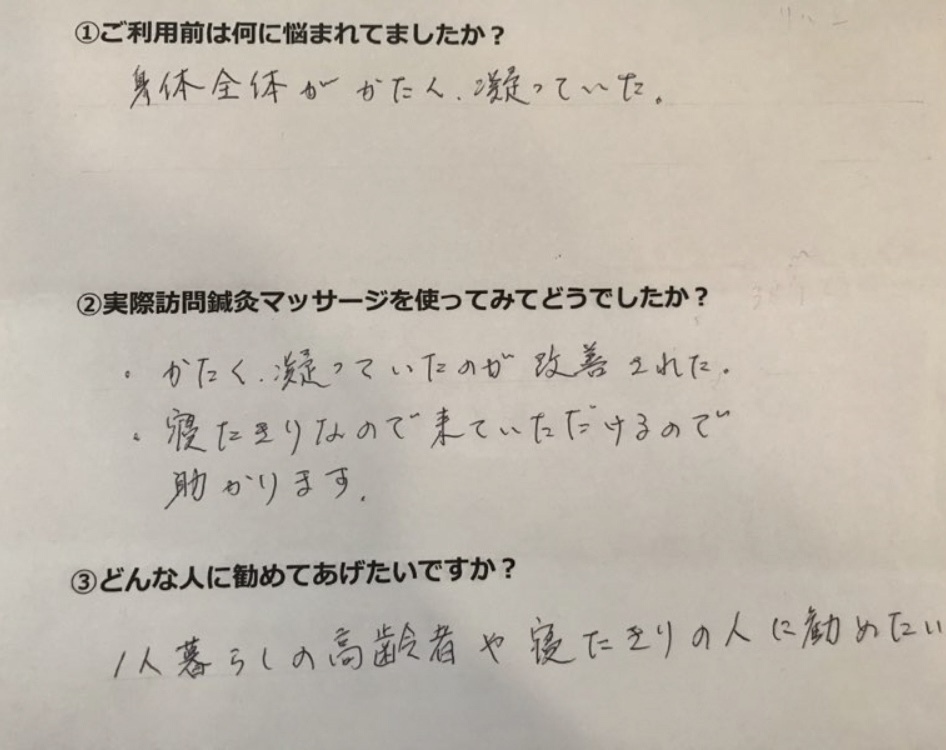 ①ご利用前は何に悩まれてましたか？
身体全体がかたく、凝っていた。
②実際訪問鍼灸マッサージを使ってみてどうでしたか？
・かたく、凝っていたのが改善された。
・寝たきりなので来ていただけるので
助かります。
③どんな人に勧めてあげたいですか？
1人暮らしの高齢者や寝たきりの人に勧めたい